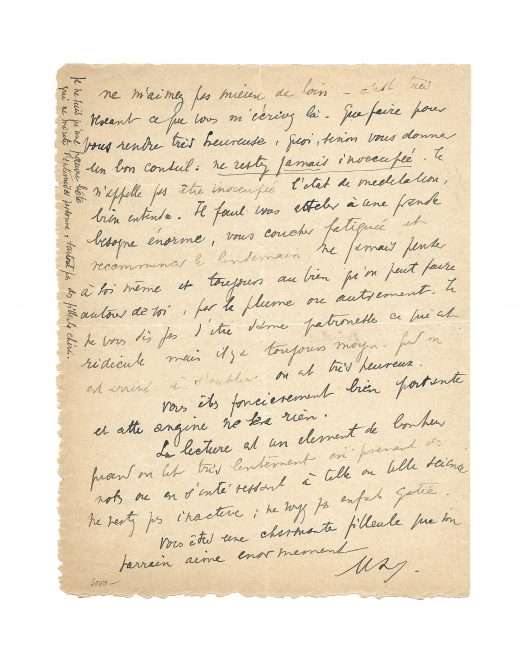 ne m'aimez pas mieux de loin – c'est très
vexant ce que vous m'écrivez là. Que faire pour
vous rendre très heureuse, quoi, sinon vous donner
un bon conseil : ne restez jamais inoccupée. Je
n'appelle pas être inoccupée l'état de méditation,
bien entendu. Il faut vous atteler à une grande
besogne énorme, vous coucher fatiguée et
recommencer le lendemain ne jamais penser
à soi même et toujours au bien qu'on peut faire
autour de soi, par la plume ou autrement. Je
ne vous dis pas d'être dame patronesse ce qui est
ridicule mais il y a toujours moyen. quand on
est arrivé à s'oublier on est très heureux.
Vous êtes foncièrement bien portante
et cette angine ne sera rien.
La lecture est un élément de bonheur
quand on lit très lentement en prenant des
notes ou en s'intéressant à telle ou telle science
ne restez pas inactive ; ne soyez pas enfant gâtée.
Vous êtes une charmante filleule que son
parrain aime enormement
Je ne suis qu'une pauvre bête
qui ne mérite l'estime de personne, surtout pas des filleules chéries.